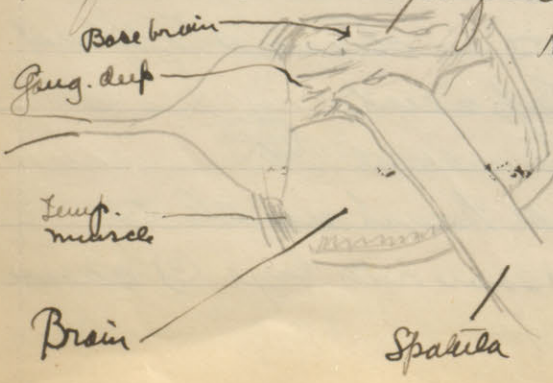 Base brain
Gang. deep
Temp.
muscle
Brain
Spatula